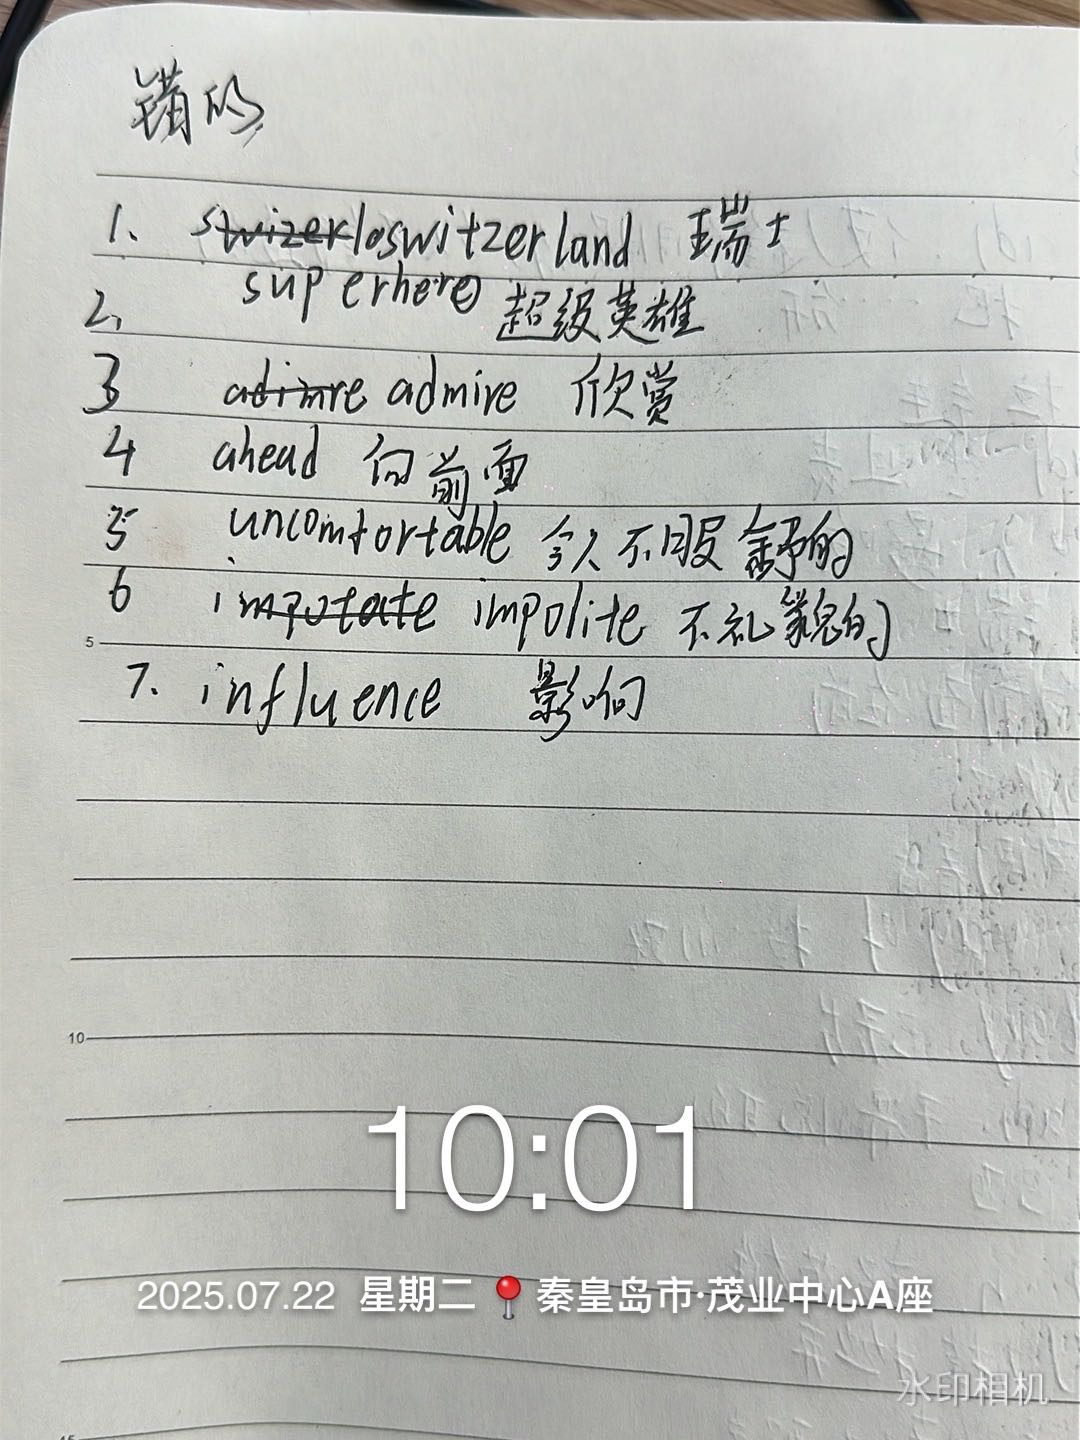 错的
1. switzerland 瑞士
2. superhero 超级英雄
3 adimre admire 欣赏
4 ahead 向前面
5 uncomfortable 令人不服舒的
6 impotate impolite 不礼貌的
7. influence 影响
5
10
15
10:01
2025.07.22 星期二 📍秦皇岛市·茂业中心A座
水印相机